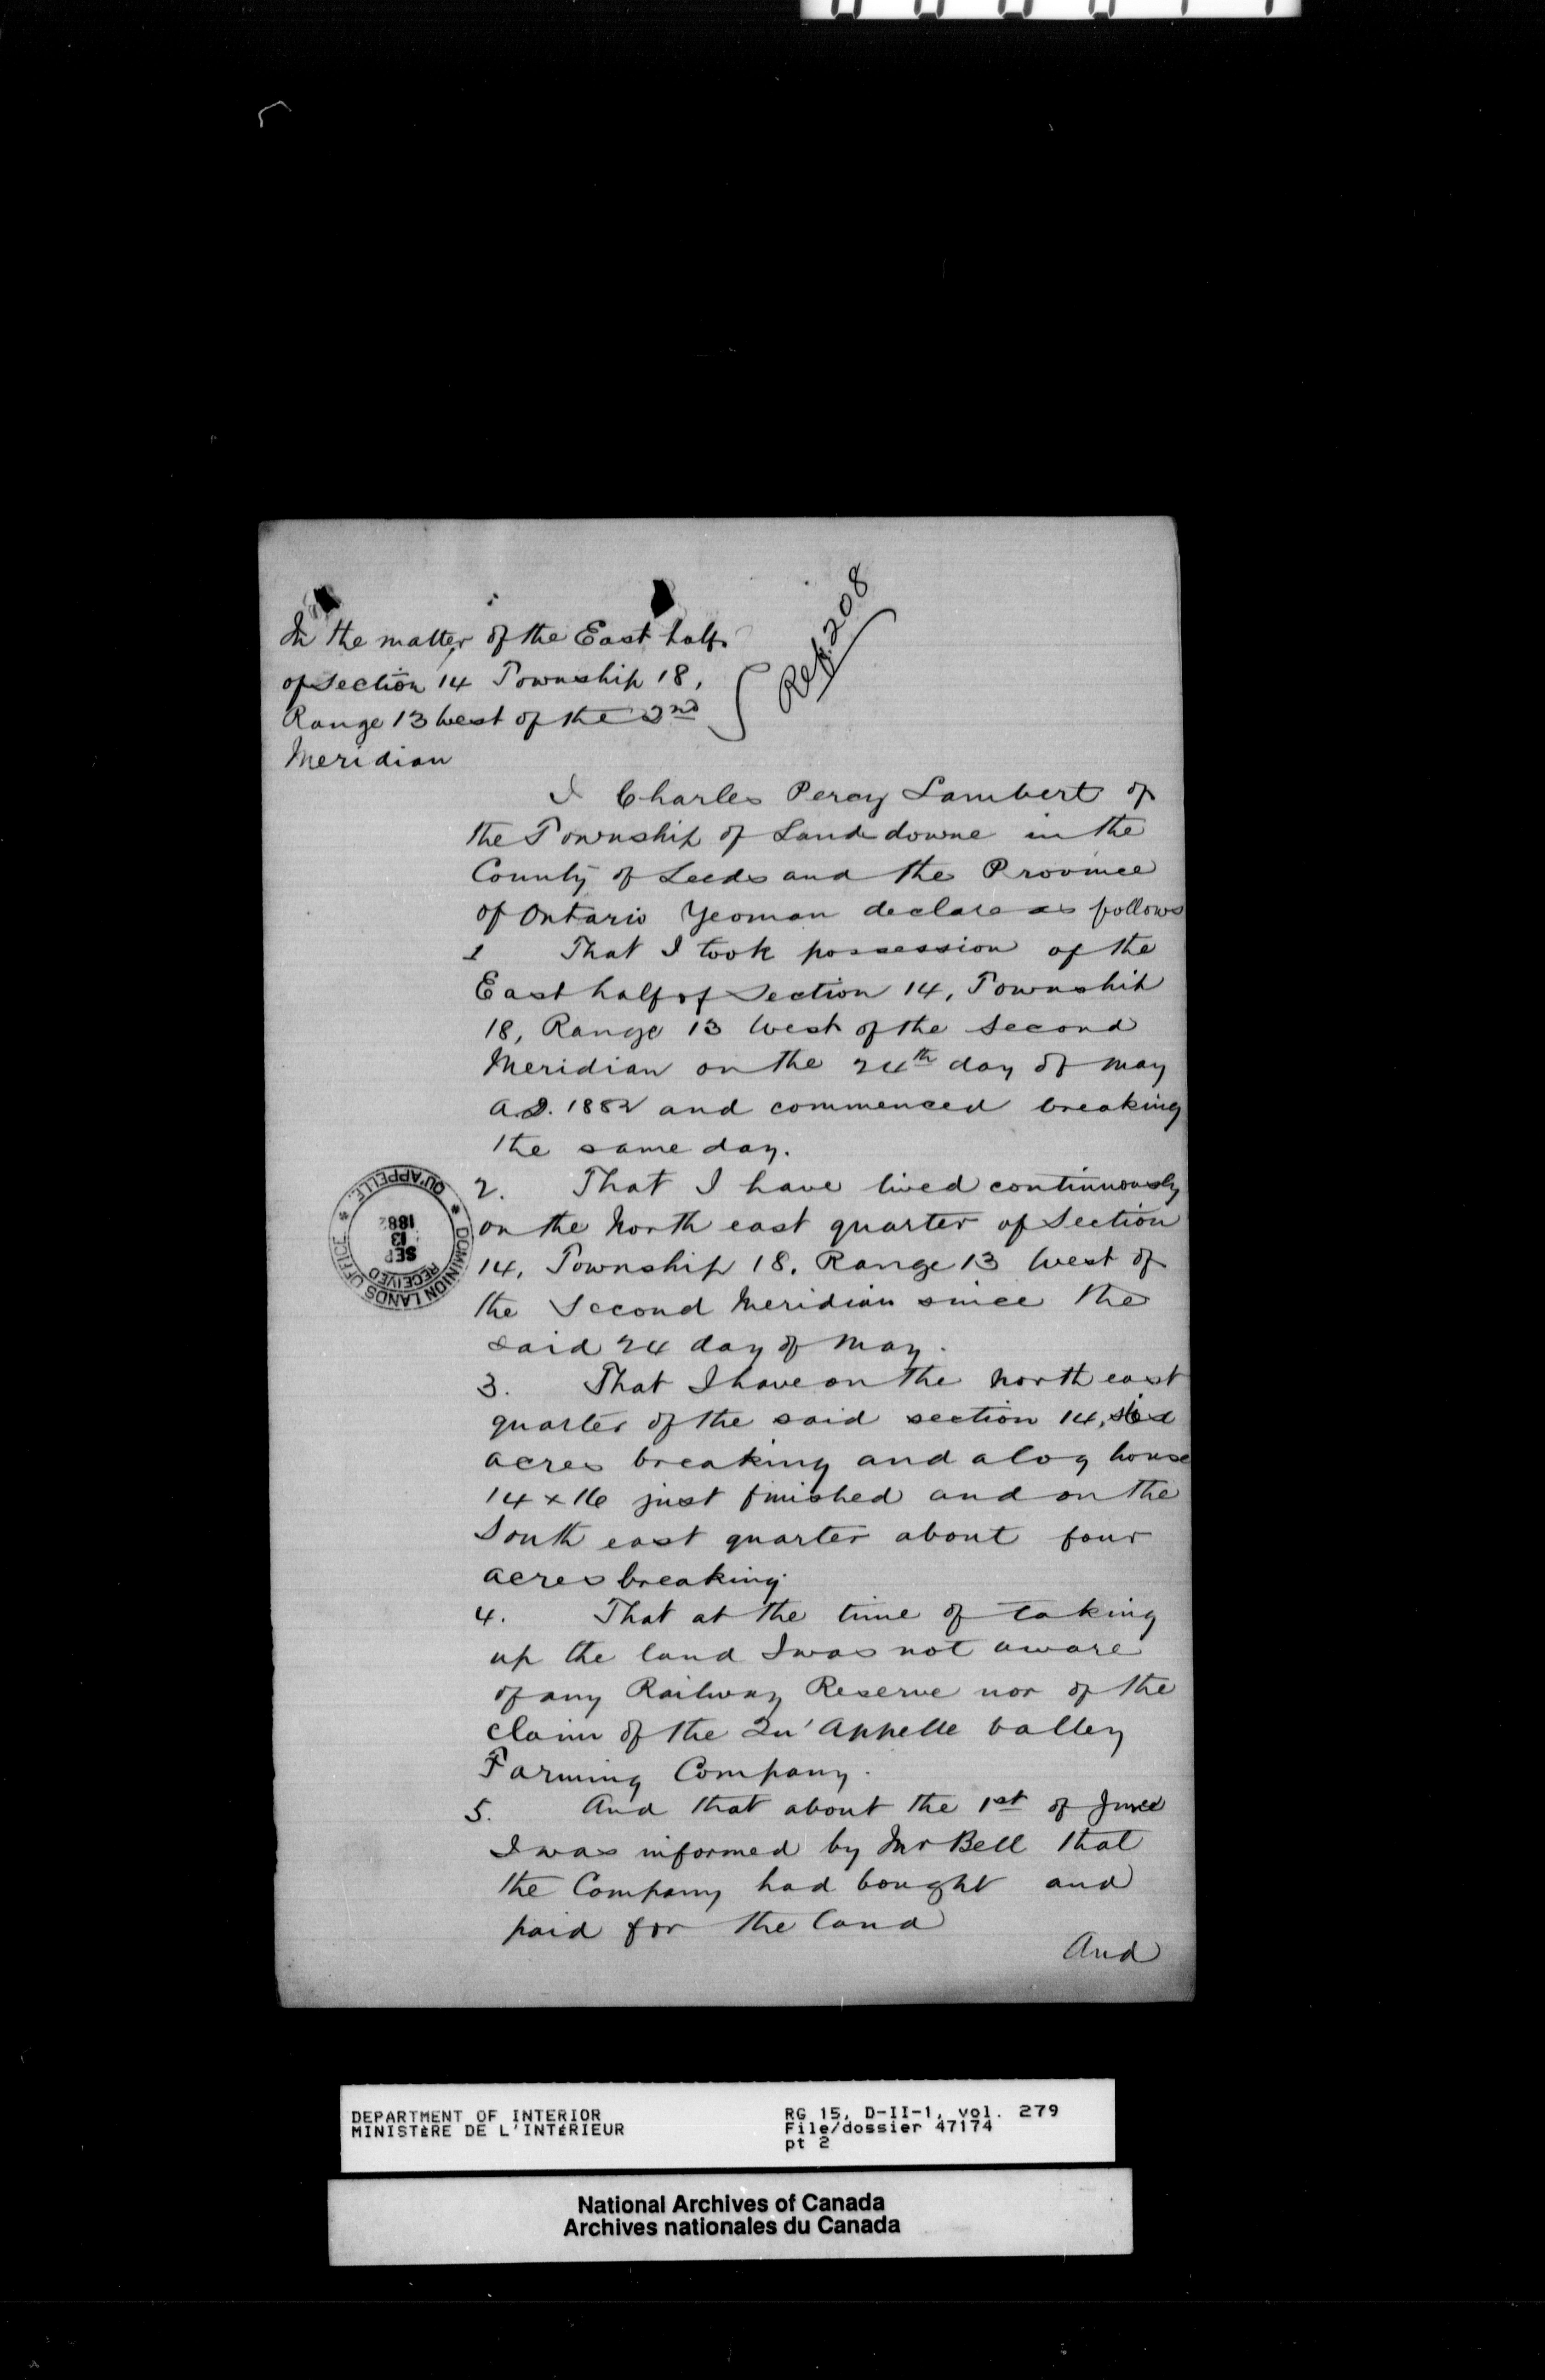 In the matter of the East half
of Section 14 Township 18,
Range 13 West of the 2nd
Meridian
Ref. 208
I Charles Percy Lambert of
the Township of Landsdowne in the
County of Leeds and the Province
of Ontario Yeoman declare as follows
1 That I took possession of the
East half of Section 14, Township
18, Range 13 West of the Second
Meridian on the 24th day of May
A.D. 1882 and commenced breaking
the same day.
2. That I have lived continuously
on the North east quarter of Section
14, Township 18, Range 13 West of
the Second Meridian since the
said 24 day of May.
3. That I have on the North east
quarter of the said section 14,
acres breaking and a log house
14 x 16 just finished and on the
South east quarter about four
acres breaking.
4. That at the time of taking
up the land I was not aware
of any Railway Reserve nor of the
claim of the Qu'Appelle Valley
Farming Company.
5. And that about the 1st of June
I was informed by Mr Bell that
the Company had bought and
paid for the land
And
DOMINION LANDS OFFICE
* QU'APPELLE. *
RECEIVED
SEP
13
1882
DEPARTMENT OF INTERIOR
MINISTÈRE DE L'INTÉRIEUR
RG 15, D-II-1, vol. 279
File/dossier 47174
pt 2
National Archives of Canada
Archives nationales du Canada